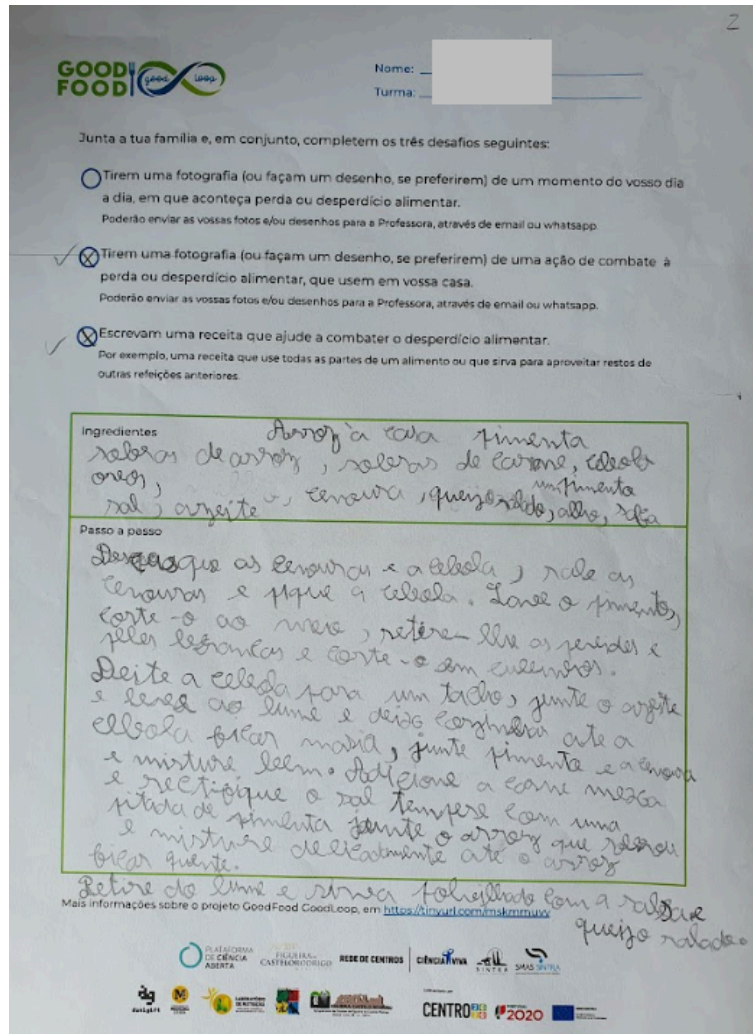 2
GOOD FOOD good loop
Nome:
Turma:
Junta a tua família e, em conjunto, completem os três desafios seguintes:
Tirem uma fotografia (ou façam um desenho, se preferirem) de um momento do vosso dia
a dia, em que aconteça perda ou desperdício alimentar.
Poderão enviar as vossas fotos e/ou desenhos para a Professora, através de email ou whatsapp.
Tirem uma fotografia (ou façam um desenho, se preferirem) de uma ação de combate à
perda ou desperdício alimentar, que usem em vossa casa.
Poderão enviar as vossas fotos e/ou desenhos para a Professora, através de email ou whatsapp.
Escrevam uma receita que ajude a combater o desperdício alimentar.
Por exemplo, uma receita que use todas as partes de um alimento ou que sirva para aproveitar restos de
outras refeições anteriores.
Ingredientes
Arroz à casa pimenta
sobras de arroz, sobras de carne, cebola
um pimento
sal, azeite, cenoura, queijo ralado, alho, salsa
Passo a passo
Descasque as cenouras e a cebola, rale as
cenouras e pique a cebola. Lave o pimento,
corte-o ao meio, retire-lhe as sevides e
peles brancas e corte-o em
Deite a cebola para um tacho, junte o azeite
e leve ao lume e deixe cozinhar até a
cebola ficar macia, junte pimento e a cenoura
e misture bem. Adicione a carne mexa
e rectifique o sal tempere com uma
pitada de pimenta junte o arroz que sobrou
e misture delicadamente até o arroz
ficar quente.
Retire do lume e sirva polvilhado com a salsa e
queijo ralado.
Mais informações sobre o projeto GoodFood GoodLoop, em https://tinyurl.com/mskmmuvv
PLATAFORMA DE CIÊNCIA ABERTA FIGUEIRA DE CASTELO RODRIGO REDE DE CENTROS CIÊNCIA VIVA SINTRA SMAS SINTRA
LABORATÓRIO DE NUTRIÇÃO CENTRO 2020 PORTUGAL 2020